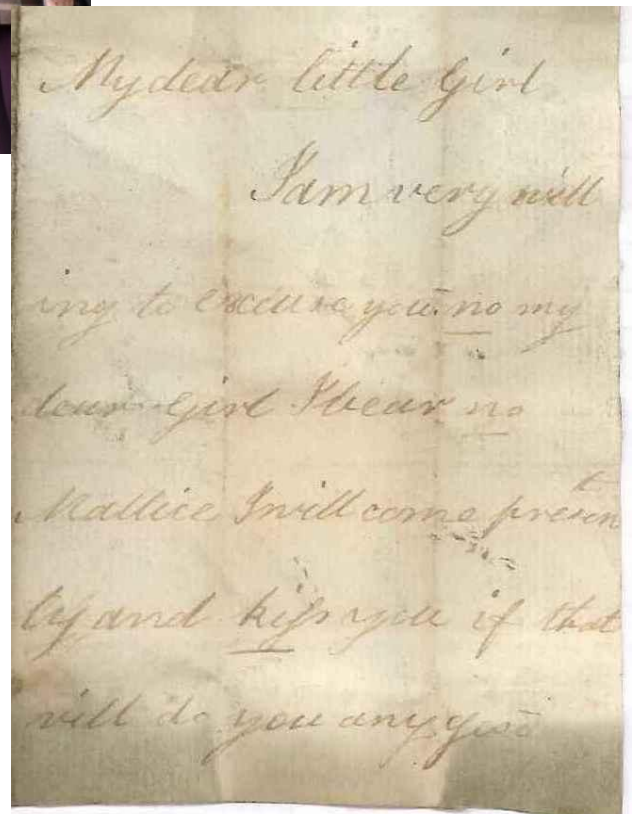 My dear little Girl
I am very will
ing to excuse you no my
dear Girl I bear no
Mallice I will come presen
tly and kiss you if that
will do you any good